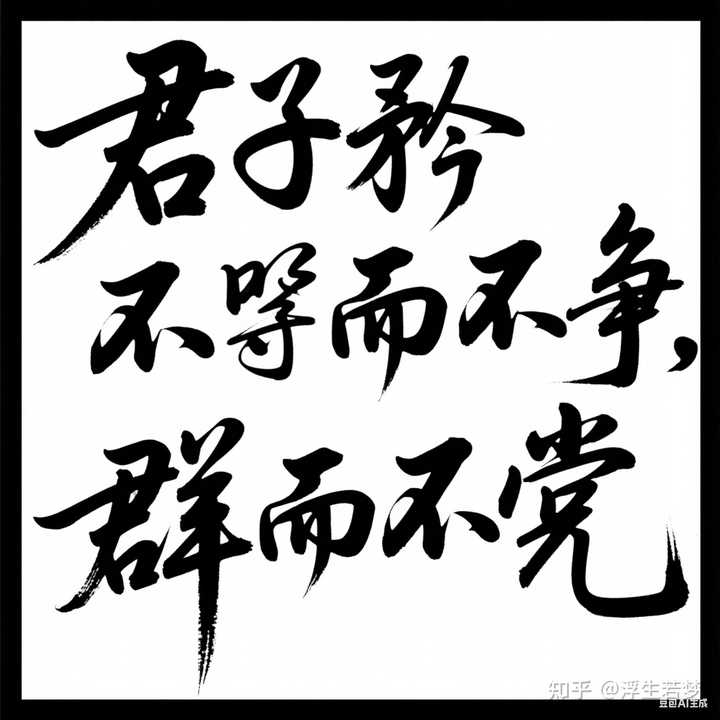 君子矜
不等而不争,
群而不党
知乎 @浮生若梦
豆包AI生成